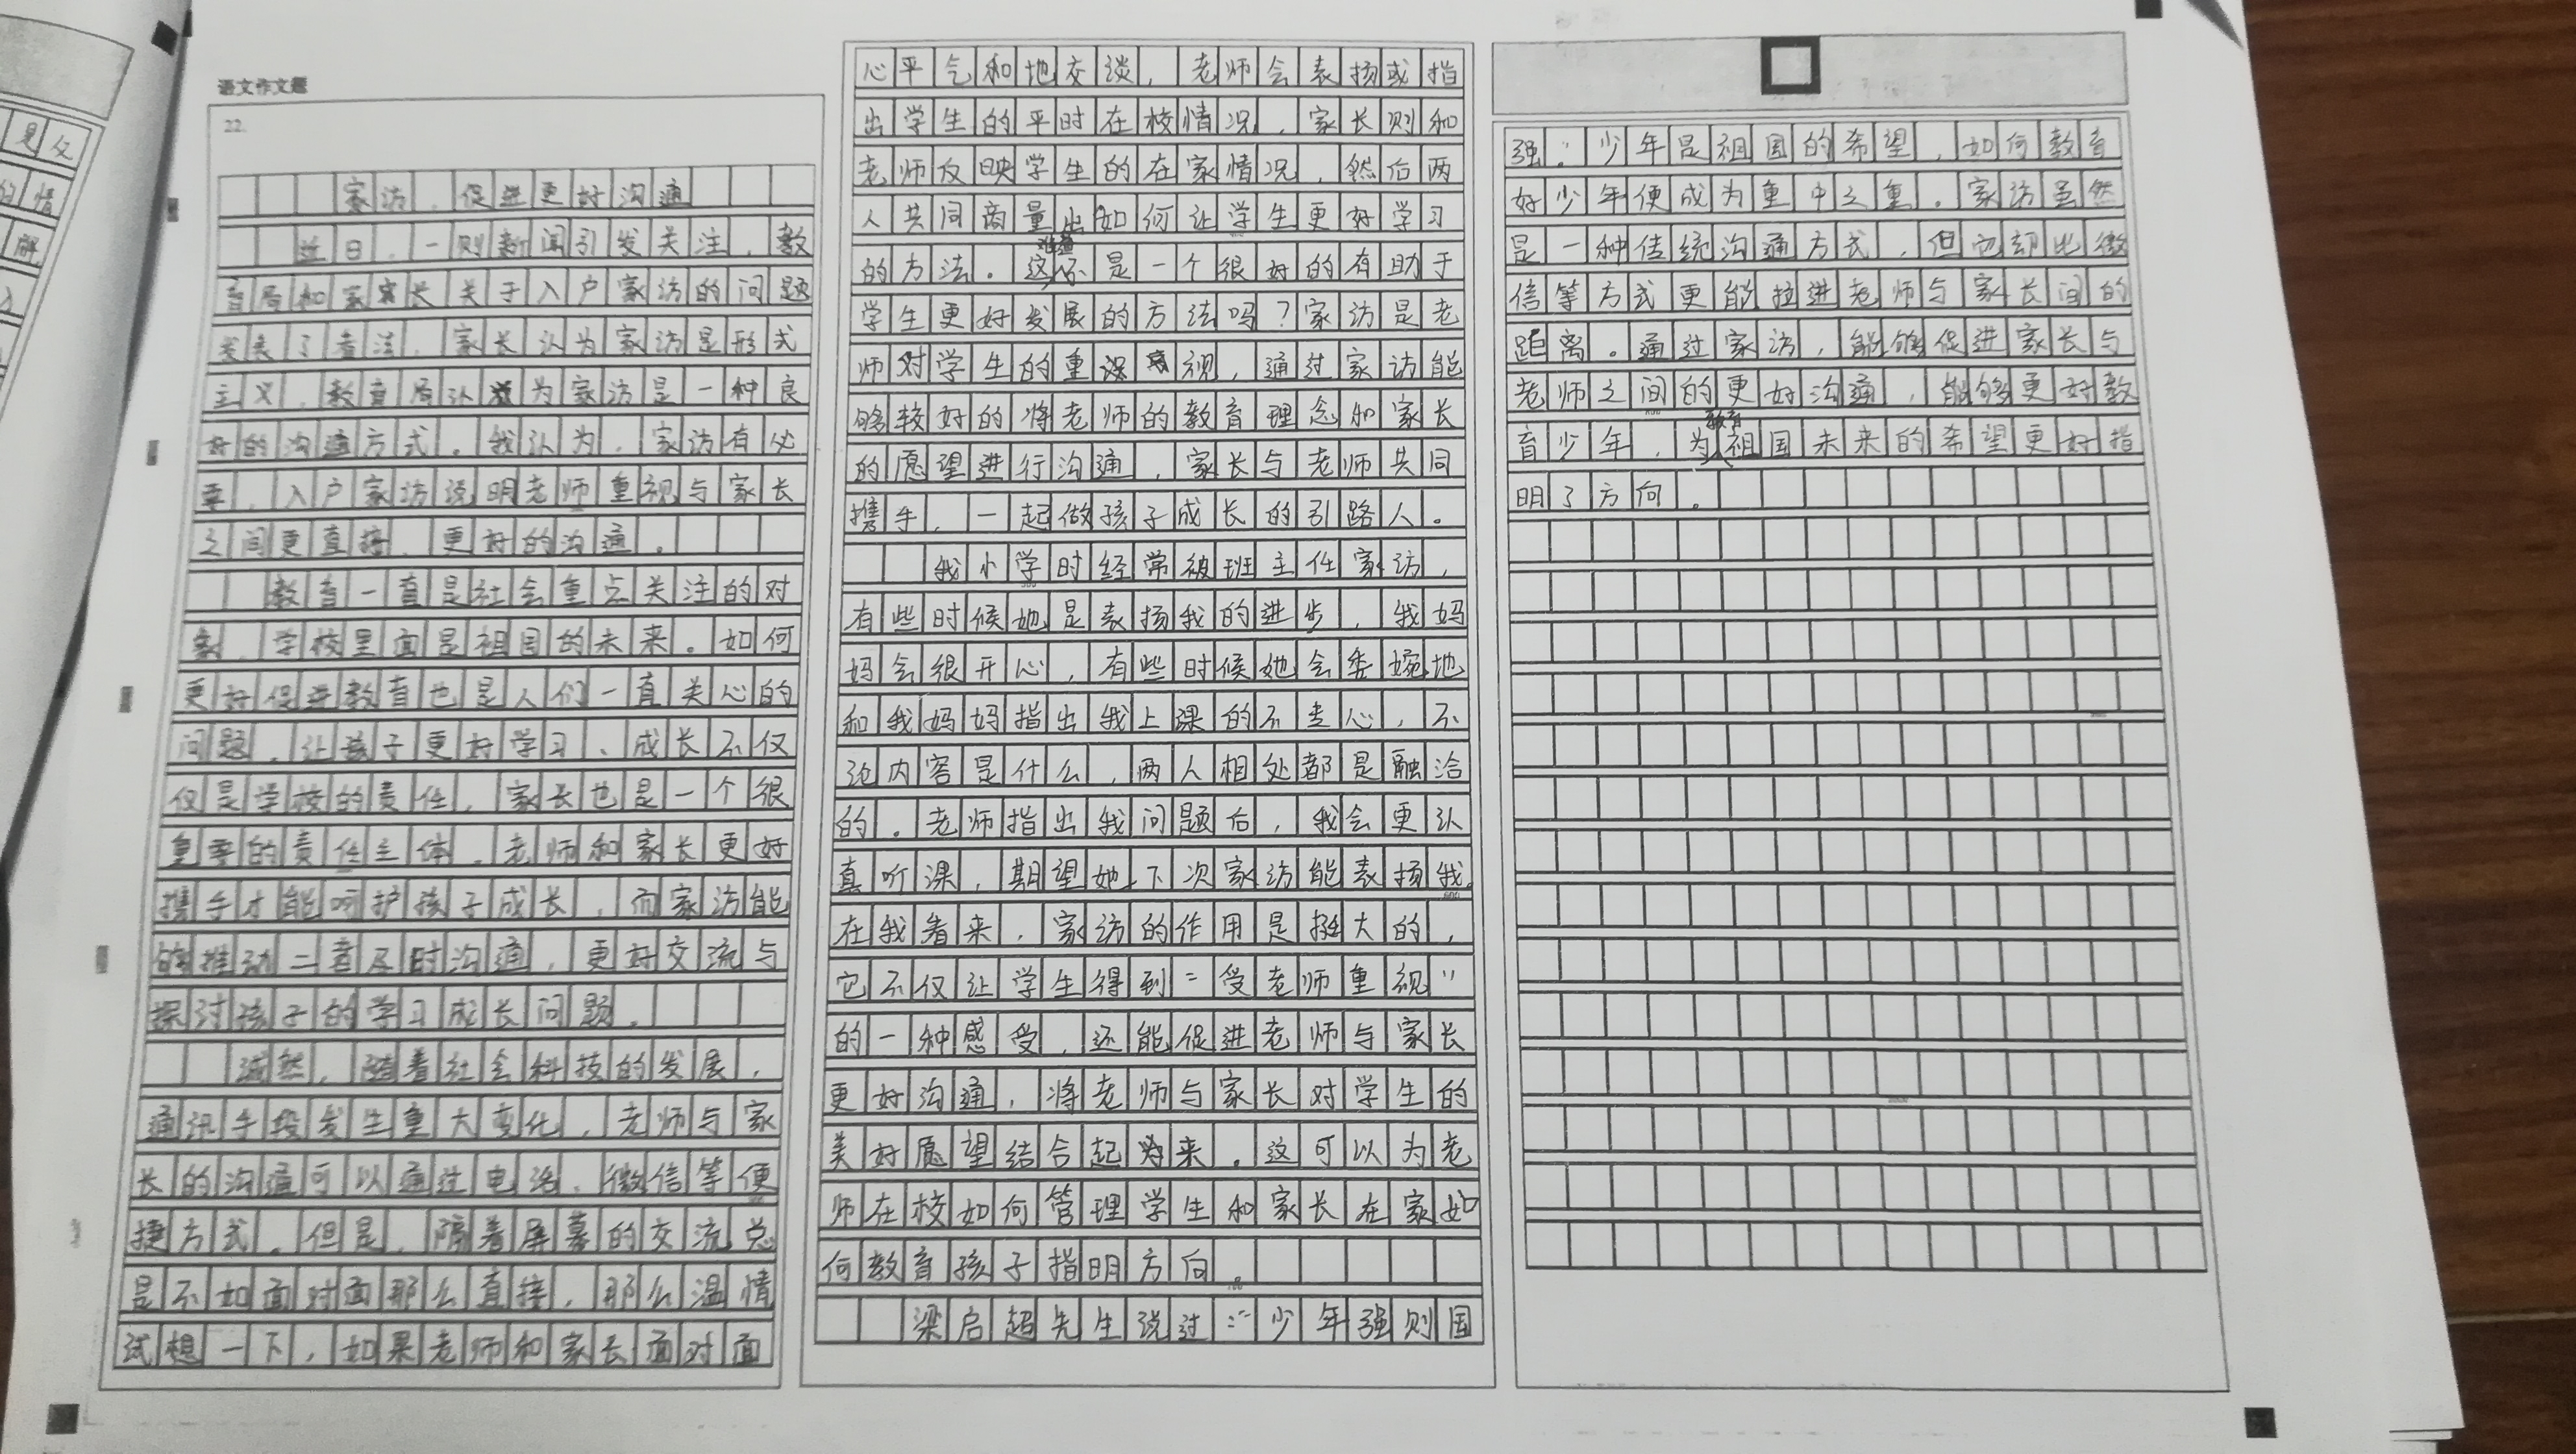 是父
的情
解
语文作文题
22.
家访，促进更好沟通
近日，一则新闻引发关注，教
育局和家长关于入户家访的问题
发表了看法，家长认为家访是形式
主义，教育局认为家访是一种良
好的沟通方式。我认为，家访有必
要，入户家访说明老师重视与家长
之间更直接、更好的沟通。
教育一直是社会重点关注的对
象，学校里面是祖国的未来。如何
更好促进教育也是人们一直关心的
问题，让孩子更好学习、成长不仅
仅是学校的责任，家长也是一个很
重要的责任主体。老师和家长更好
携手才能呵护孩子成长，而家访能
够推动二者及时沟通，更好交流与
探讨孩子的学习成长问题。
诚然，随着社会科技的发展，
通讯手段发生重大变化，老师与家
长的沟通可以通过电话、微信等便
捷方式。但是，隔着屏幕的交流总
是不如面对面那么直接，那么温情
试想一下，如果老师和家长面对面
心平气和地交谈，老师会表扬或指
出学生的平时在校情况，家长则和
老师反映学生的在家情况，然后两
人共同商量出如何让学生更好学习
的方法。这难道不是一个很好的有助于
学生更好发展的方法吗？家访是老
师对学生的重视，通过家访能
够较好的将老师的教育理念和家长
的愿望进行沟通，家长与老师共同
携手，一起做孩子成长的引路人。
我小学时经常被班主任家访，
有些时候她是表扬我的进步，我妈
妈会很开心，有些时候她会委婉地
和我妈妈指出我上课的不走心，不
论内容是什么，两人相处都是融洽
的。老师指出我问题后，我会更认
真听课，期望她下次家访能表扬我。
在我看来，家访的作用是挺大的，
它不仅让学生得到“受老师重视”
的一种感受，还能促进老师与家长
更好沟通，将老师与家长对学生的
美好愿望结合起来。这可以为老
师在校如何管理学生和家长在家如
何教育孩子指明方向。
梁启超先生说过：“少年强则国
强。”少年是祖国的希望，如何教育
好少年便成为重中之重。家访虽然
是一种传统沟通方式，但它却比微
信等方式更能拉进老师与家长间的
距离。通过家访，能够促进家长与
老师之间的更好沟通，能够更好教
育少年，为教育祖国未来的希望更好指
明了方向。